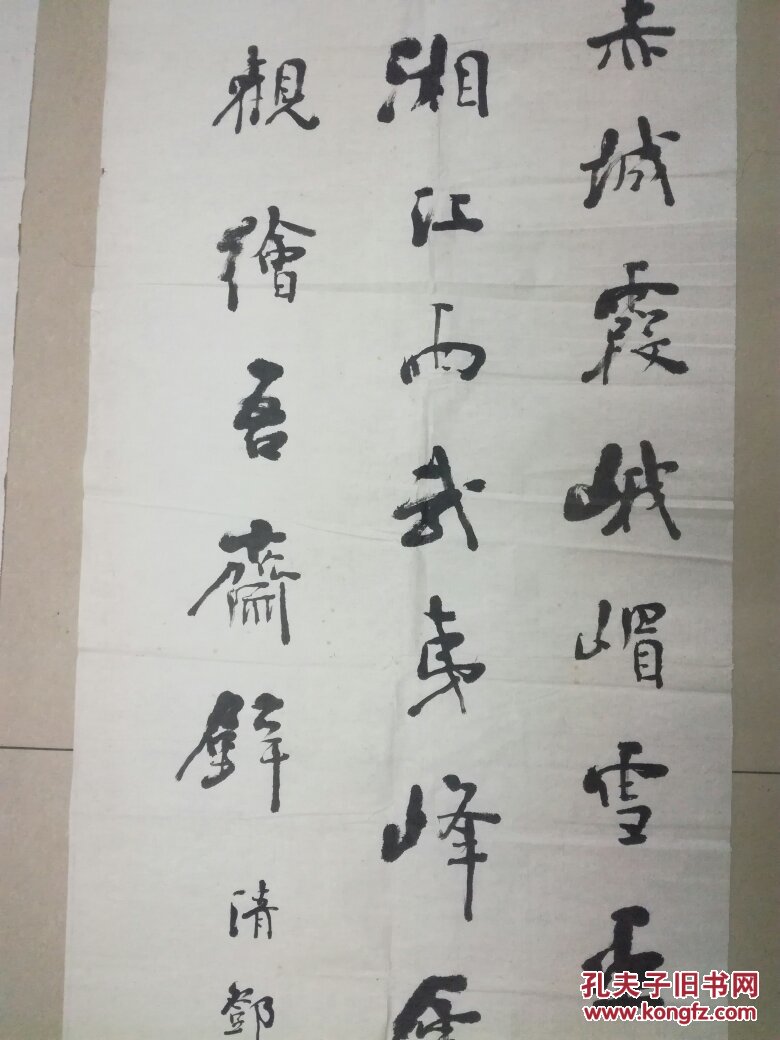 赤城霞峨嵋雪
湘江雨武夷峰
觀繪吾齋壁清鄧
孔夫子旧书网
www.kongfz.com